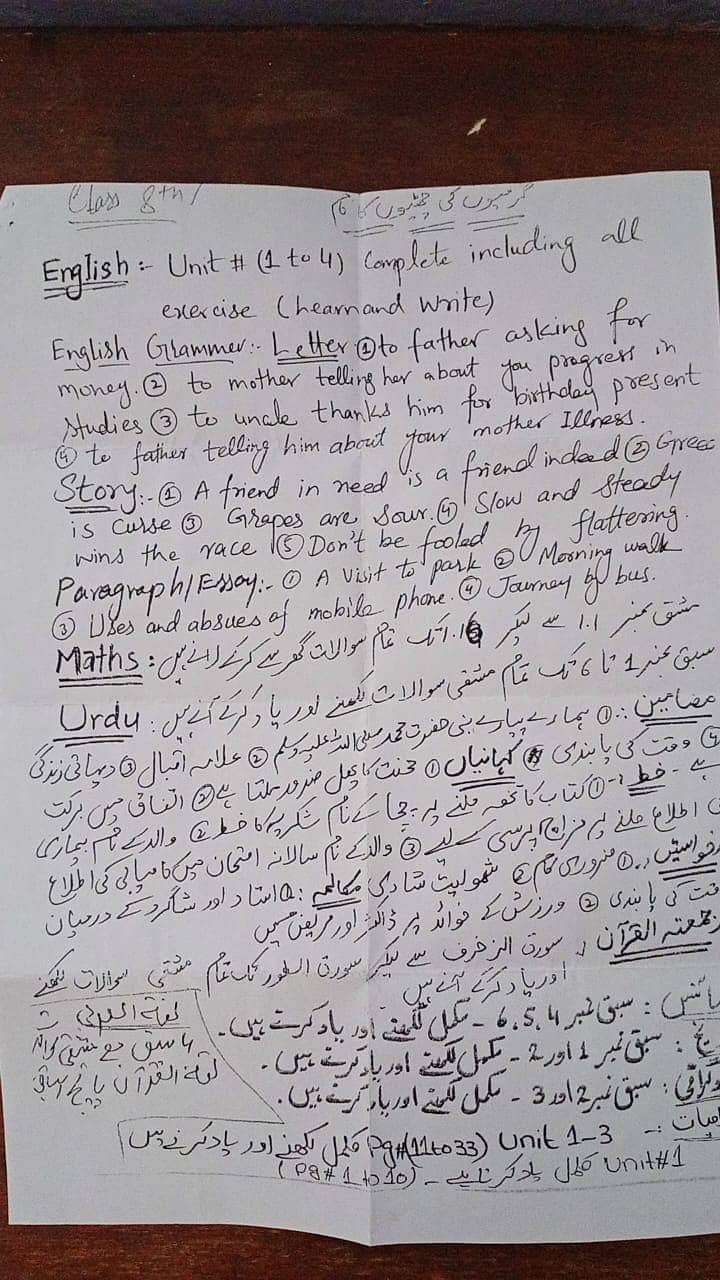 Class 8th / گرمیوں کی چھٹیوں کا کام
English :- Unit # (1 to 4) Complete including all
exercise (Learn and Write)
English Grammer:- Letter ① to father asking for
money. ② to mother telling her about you progress in
studies ③ to uncle thanks him for birthday present
④ to father telling him about your mother Illness.
Story:- ① A friend in need is a friend indeed ② Greed
is curse ③ Grapes are sour. ④ Slow and steady
wins the race ⑤ Don't be fooled by flattering.
Paragraph/Essay:- ① A Visit to park ② Morning walk
③ Uses and absues of mobile phone. ④ Journey by bus.
Maths : مشق نمبر 1.1 سے لیکر تک تمام سوالات گھر سے کرکے لانے ہیں
Urdu : سبق نمبر 1 تا 6 تک تمام مشقی سوالات لکھنے اور یاد کرکے آنے ہیں
مضامین :- ① ہمارے پیارے نبی حضرت محمد صلی اللہ علیہ وسلم ② علامہ اقبال ③ دیہاتی زندگی
④ وقت کی پابندی کہانیاں ① محنت کا پھل ضرور ملتا ہے ② اتفاق میں برکت
ہے - خط :- ① کتاب کا تحفہ ملنے پر چچا کے نام شکریہ کا خط ② والد کے نام بیماری
کی اطلاع ملنے پر مزاج پرسی کے لیے ③ والد کے نام سالانہ امتحان میں کامیابی کی اطلاع
درخواستیں :- ① ضروری کام ② شمولیت شادی مکالمہ : ① استاد اور شاگرد کے درمیان
وقت کی پابندی ② ورزش کے فوائد پر ڈاکٹر اور مریض میں
ترجمتہ القرآن : سورۃ الزخرف سے لیکر سورۃ الطور تک تمام مشقی سوالات لکھنے
اور یاد کرکے آنے ہیں
سائنس : سبق نمبر 4، 5، 6 - مکمل لکھنے اور یاد کرتے ہیں۔
سبق نمبر 1 اور 2 - مکمل لکھنے اور یاد کرتے ہیں۔
سبق نمبر 2 اور 3 - مکمل لکھنے اور یاد کرتے ہیں۔
لغۃ العربی
سبق مع مشقی
لغۃ القرآن پانچ
Unit 1-3 Pg#(11 to 33) مکمل لکھنے اور یاد کرنے ہیں
Unit#1 مکمل یاد کرنا ہے - (Pg# 1 to 10)